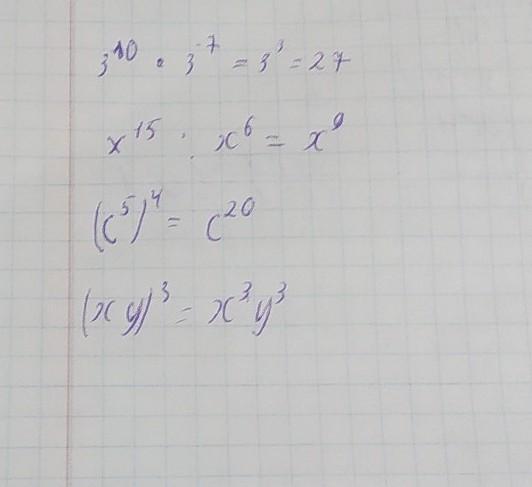 3¹⁰ · 3⁻⁷ = 3³ = 27
x¹⁵ : x⁶ = x⁹
(c⁵)⁴ = c²⁰
(xy)³ = x³y³